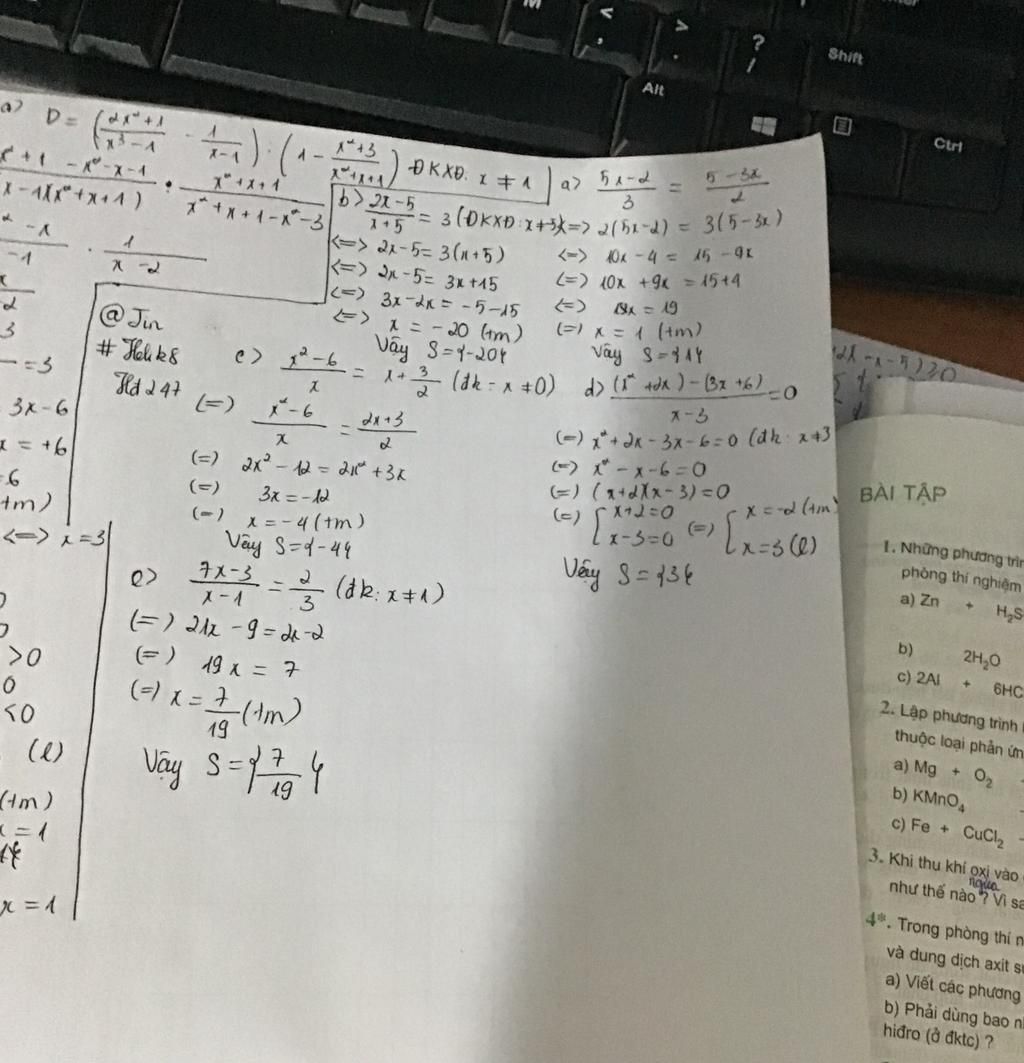 M < , > . ? / Shift
Alt Ctrl
a> D = (2x²+1/x³-1 - 1/x-1) : (1 - x²+3/x²+x+1) ĐKXĐ: x ≠ 1
x²+1 - x² - x - 1/(x-1)(x²+x+1) : x²+x+1/x²+x+1-x²-3
-1 . 1/x-2
= 3
3x-6
x = +6
(tm)
<=> x = 3
>0
0
<0
(l)
(tm)
x = 1
x = 1
@Jin
Hd 247
a> 5x-2/3 = 5-3x/2
<=> 2(5x-2) = 3(5-3x)
<=> 10x - 4 = 15 - 9x
<=> 10x + 9x = 15+4
<=> 19x = 19
<=> x = 1 (tm)
Vậy S={1}
b> 2x-5/x+5 = 3 (ĐKXĐ: x≠5)
<=> 2x-5 = 3(x+5)
<=> 2x-5 = 3x+15
<=> 3x-2x = -5-15
<=> x = -20 (tm)
Vậy S={-20}
c> x²-6/x = x+3/2 (đk: x≠0)
<=> x²-6/x = 2x+3/2
<=> 2x²-12 = 2x²+3x
<=> 3x = -12
<=> x = -4 (tm)
Vậy S={-4}
d> (x²+2x)-(3x+6)/x-3 = 0
<=> x²+2x-3x-6=0 (đk: x≠3
<=> x²-x-6=0
<=> (x+2)(x-3)=0
<=> [x+2=0 <=> [x=-2 (tm)
x-3=0 x=3 (l)
Vậy S={3}
e> 7x-3/x-1 = 2/3 (đk: x≠1)
<=> 21x-9 = 2x-2
<=> 19x = 7
<=> x = 7/19 (tm)
Vậy S={7/19}
BÀI TẬP
1. Những phương trìn
phòng thí nghiệm
a) Zn + H₂S
b) 2H₂O
c) 2Al + 6HC
2. Lập phương trình
thuộc loại phản ứn
a) Mg + O₂
b) KMnO₄
c) Fe + CuCl₂
3. Khi thu khí oxi vào
ngửa
như thế nào ? Vì sa
4*. Trong phòng thí n
và dung dịch axit s
a) Viết các phương
b) Phải dùng bao n
hiđro (ở đktc) ?